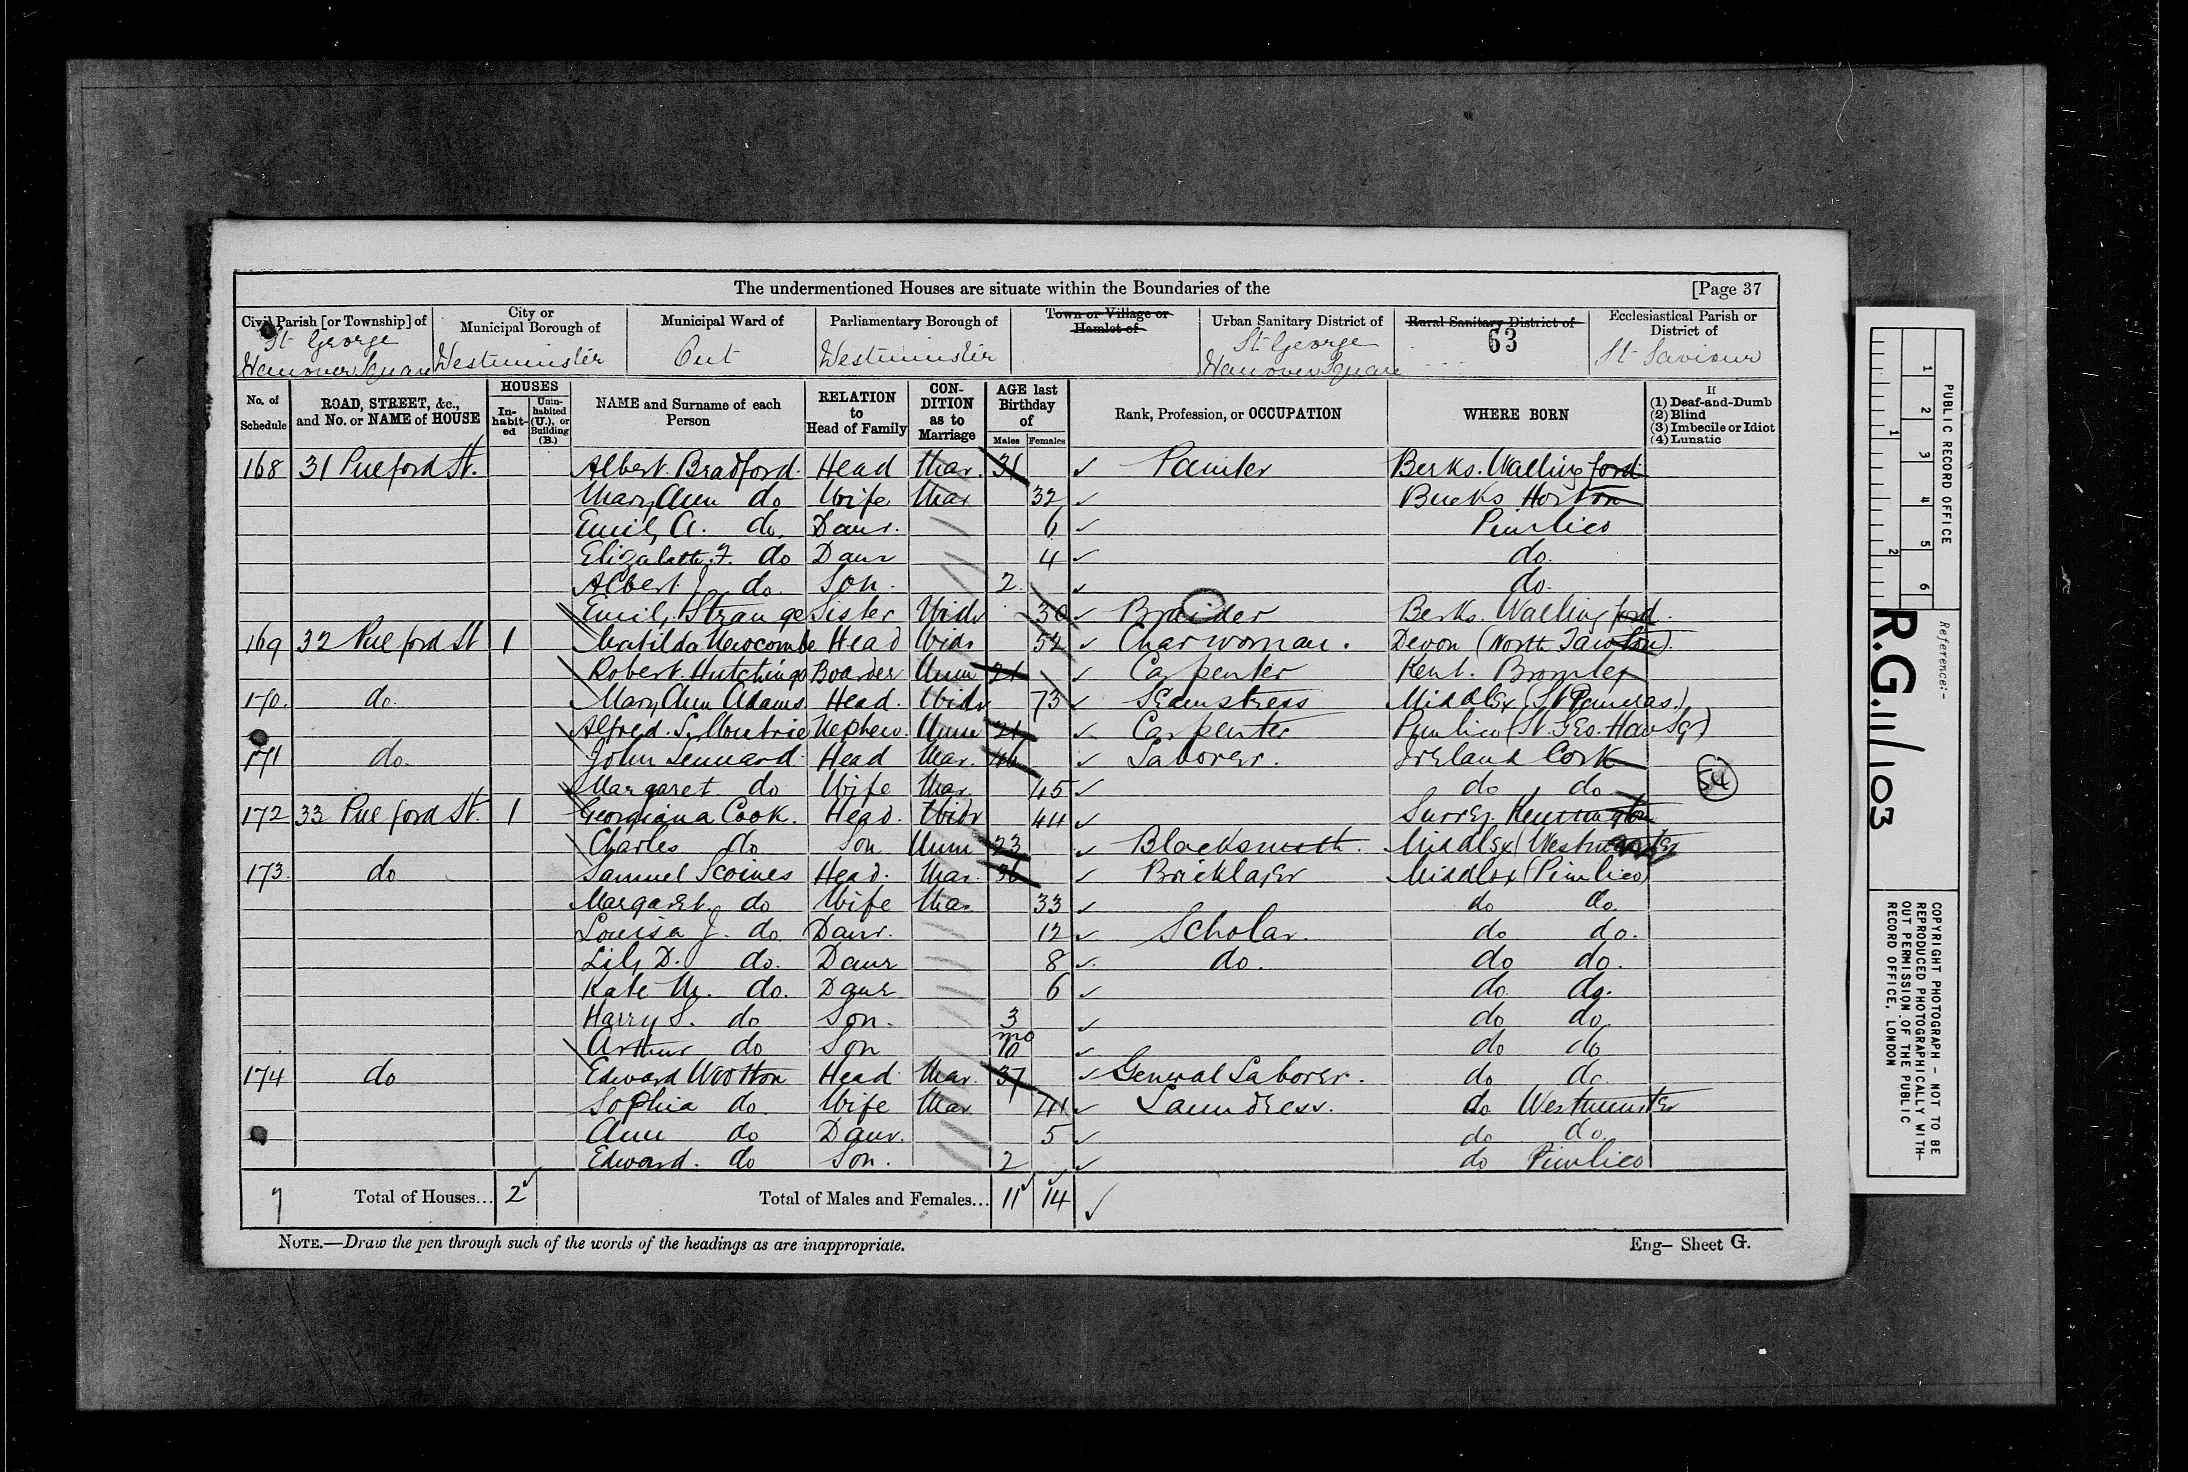 The undermentioned Houses are situate within the Boundaries of the [Page 37
Civil Parish [or Township] of St George Hanover Square
City or Municipal Borough of Westminster
Municipal Ward of Out
Parliamentary Borough of Westminster
Town or Village or Hamlet of
Urban Sanitary District of St George Hanover Square
Rural Sanitary District of 63
Ecclesiastical Parish or District of St Saviour
No. of Schedule
ROAD, STREET, &c., and No. or NAME of HOUSE
HOUSES
In-habit-ed
Unin-habited (U.), or Building (B.)
NAME and Surname of each Person
RELATION to Head of Family
CON-DITION as to Marriage
AGE last Birthday of
Males Females
Rank, Profession, or OCCUPATION
WHERE BORN
If
(1) Deaf-and-Dumb
(2) Blind
(3) Imbecile or Idiot
(4) Lunatic
168 31 Pulford St. Albert Bradford Head Mar. 31 Painter Berks. Wallingford
Mary Ann do Wife Mar 32 Bucks Horton
Emily A. do. Daur. 6 Pimlico
Elizabeth F. do Daur 4 do.
Albert J. do. Son. 2 do.
Emily Strange Sister Widr 30 Braider Berks. Wallingford.
169 32 Pulford St 1 Matilda Newcombe Head Widr 52 Charwoman. Devon (North Tawton).
Robert Hutchings Boarder Unm 21 Carpenter Kent. Bromley
170. do. Mary Ann Adams Head. Widr 73 Seamstress Middlsx (St Pancras.)
Alfred. S. Moutrie Nephew. Unm 21 Carpenter Pimlico (St. Geo. Han Sq)
171 do. John Lennard Head Mar. 46 Laborer. Ireland Cork
Margaret do Wife Mar. 45 do do 54
172 33 Pulford St. 1 Georgiana Cook. Head. Widr 44 Surrey Kennington
Charles do Son Unm 23 Blacksmith. Middlsx (Westminster
173. do Samuel Scoines Head. Mar. 36 Bricklayer Middlsx (Pimlico)
Margaret. do Wife Mar 33 do do.
Louisa J. do Daur. 12 Scholar. do do.
Lily D. do. Daur 8 do. do do.
Kate M. do. Daur 6 do do.
Harry S. do Son. 3 do do
Arthur do Son mo 10 do do
174 do Edward Wootton Head Mar. 37 General Laborer. do do
Sophia do. Wife Mar 41 Laundress. do Westminster
Ann do Daur. 5 do do.
Edward. do Son. 2 do Pimlico
7 Total of Houses... 2 Total of Males and Females... 11 14
NOTE.—Draw the pen through such of the words of the headings as are inappropriate.
Eng— Sheet G.
PUBLIC RECORD OFFICE
1 2 3 4 5 6
1 2
Reference:-
R.G. 11/103
COPYRIGHT PHOTOGRAPH - NOT TO BE
REPRODUCED PHOTOGRAPHICALLY WITH-
OUT PERMISSION OF THE PUBLIC
RECORD OFFICE, LONDON